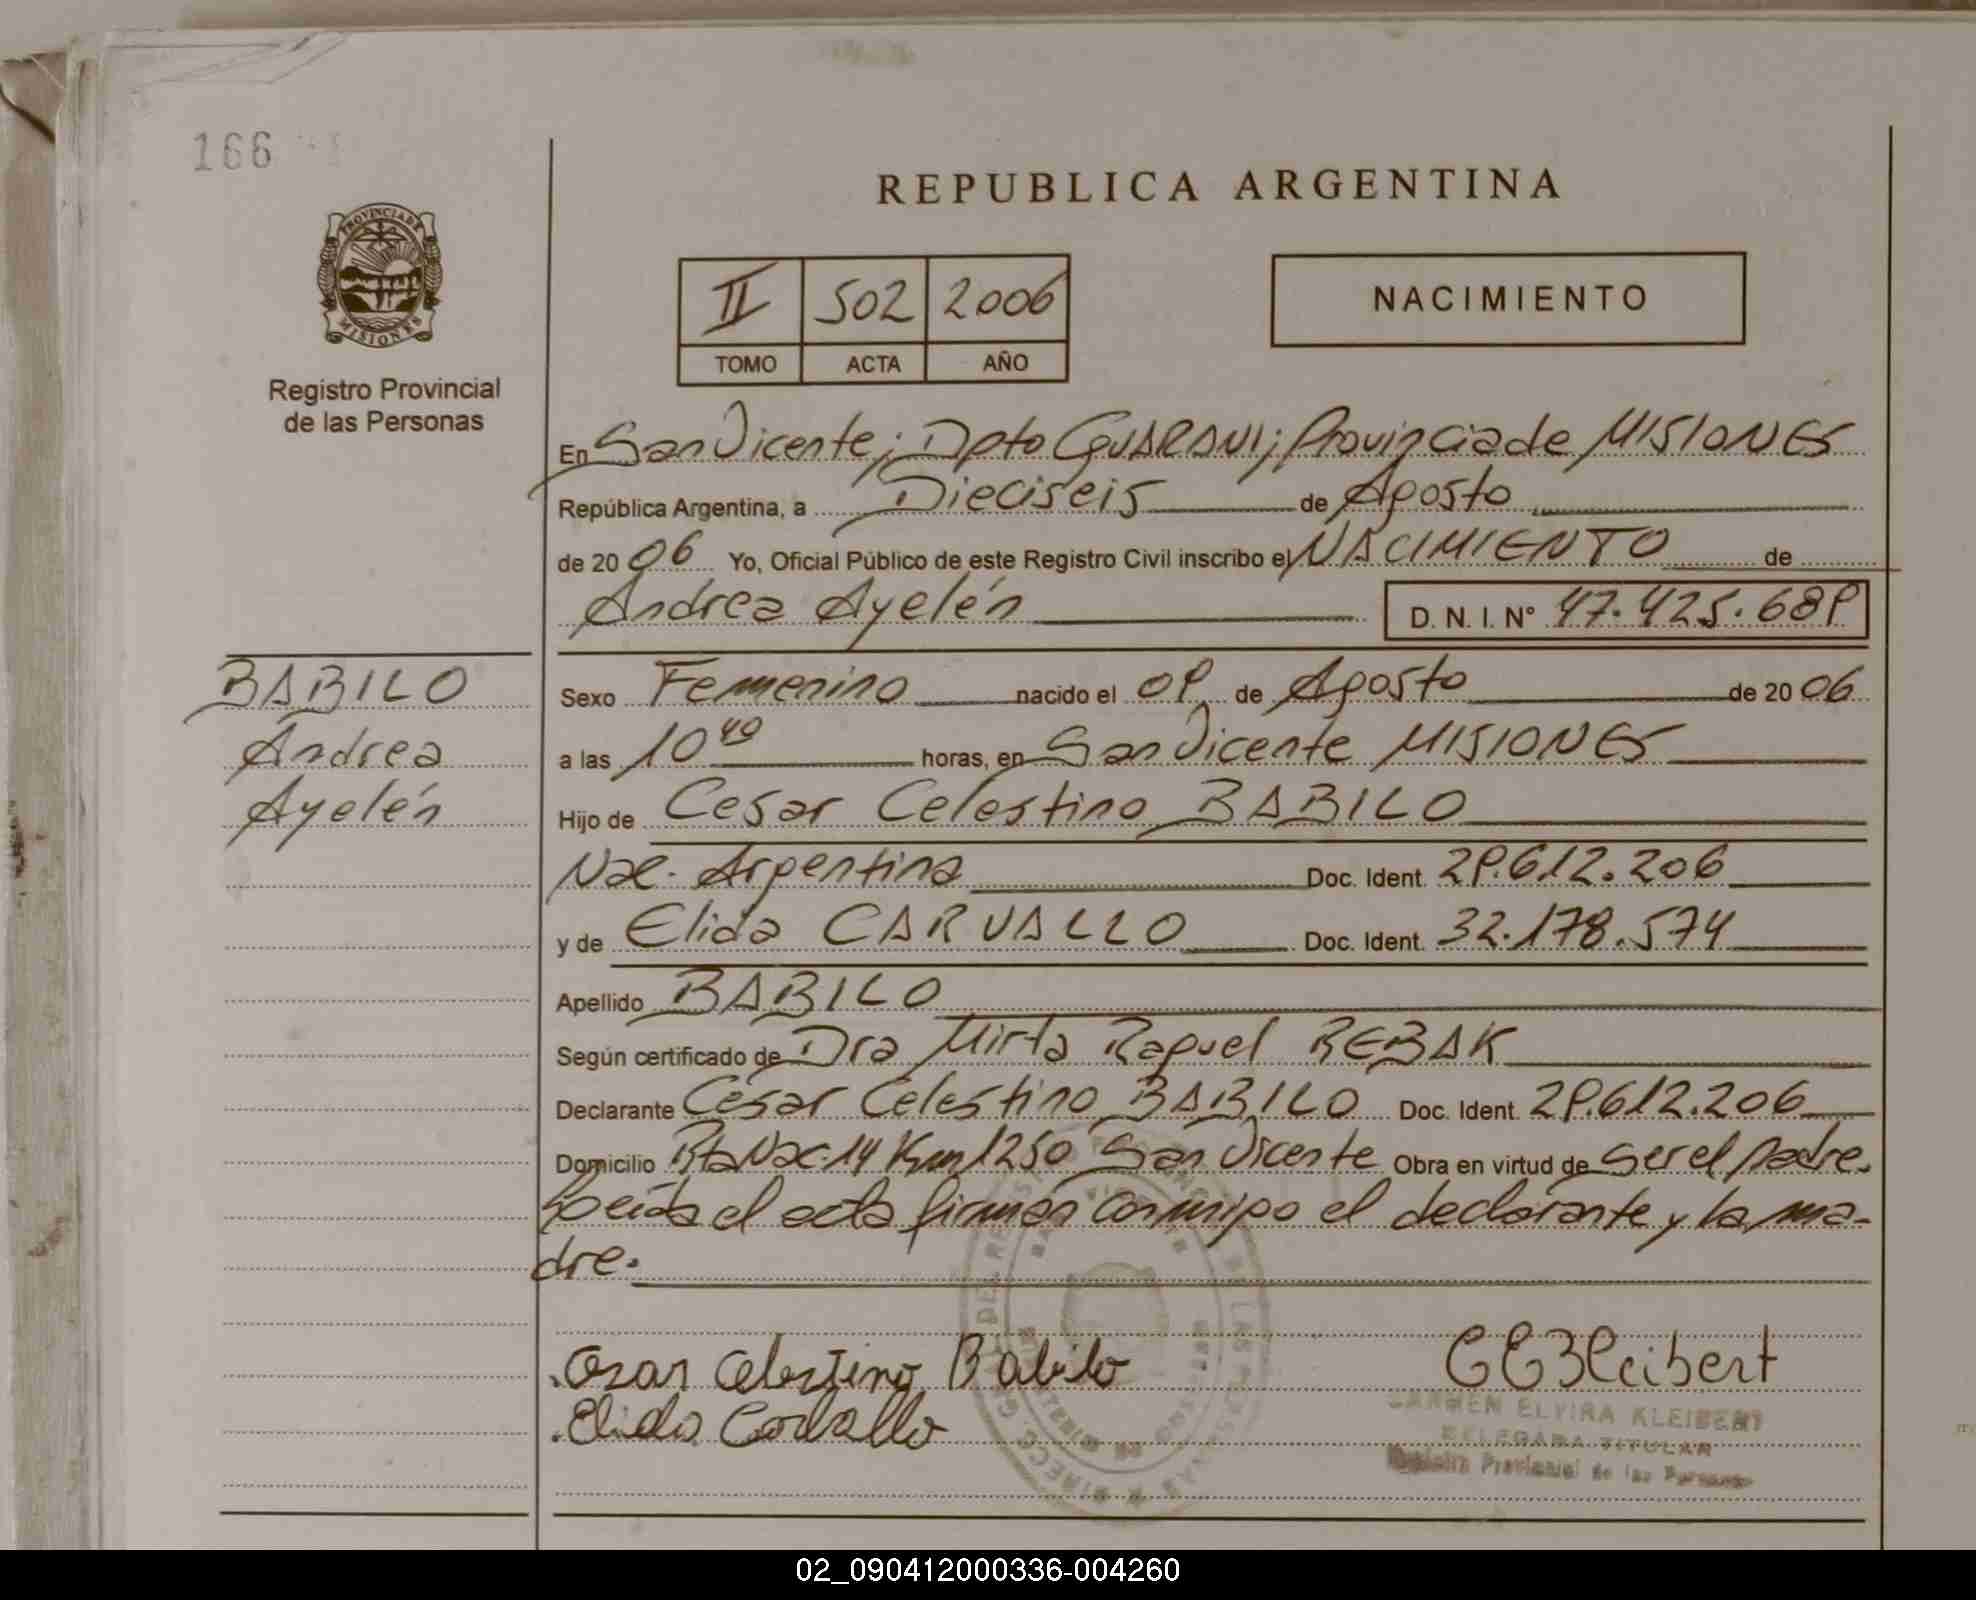 166
REPUBLICA ARGENTINA
PROVINCIA DE
MISIONES
Registro Provincial
de las Personas
II 502 2006
TOMO ACTA AÑO
NACIMIENTO
En San Vicente; Dpto GUARANI; Provincia de MISIONES
República Argentina, a Dieciseis de Agosto
de 2006 Yo, Oficial Público de este Registro Civil inscribo el NACIMIENTO de
Andrea Ayelén D. N. I. N° 47.425.689
BABILO
Andrea
Ayelén
Sexo Femenino nacido el 09 de Agosto de 2006
a las 10 40 horas, en San Vicente MISIONES
Hijo de Cesar Celestino BABILO
Nac. Argentina Doc. Ident. 29.612.206
y de Elida CARVALLO Doc. Ident. 32.178.574
Apellido BABILO
Según certificado de Dra Mirta Raquel REBAK
Declarante Cesar Celestino BABILO Doc. Ident. 29.612.206
Domicilio Rta Nac. 14 Km 1250 San Vicente Obra en virtud de ser el padre.
Leída el acta firman conmigo el declarante y la ma-
dre.
Cesar Celestino Babilo
Elida Carvallo
CEKleibert
CARMEN ELVIRA KLEIBERT
DELEGADA TITULAR
Registro Provincial de las Personas
02_090412000336-004260